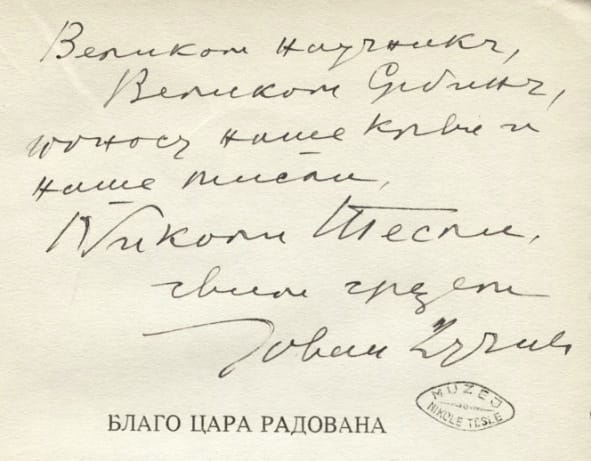 Великом научнику,
Великом Србину,
поносу наше крви и
наше мисли,
Николи Тесли,
свим срцем
Јован Дучић
MUZEJ
NIKOLE TESLE
БЛАГО ЦАРА РАДОВАНА